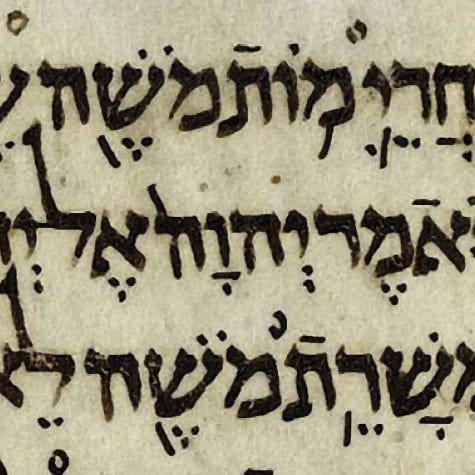 חֲרֵ֛י מ֥וֹת מֹשֶׁ֖ה
אמֶר יְהוָה֙ אֶל־יְ
מְשָׁרֵ֥ת מֹשֶׁ֖ה לֵא